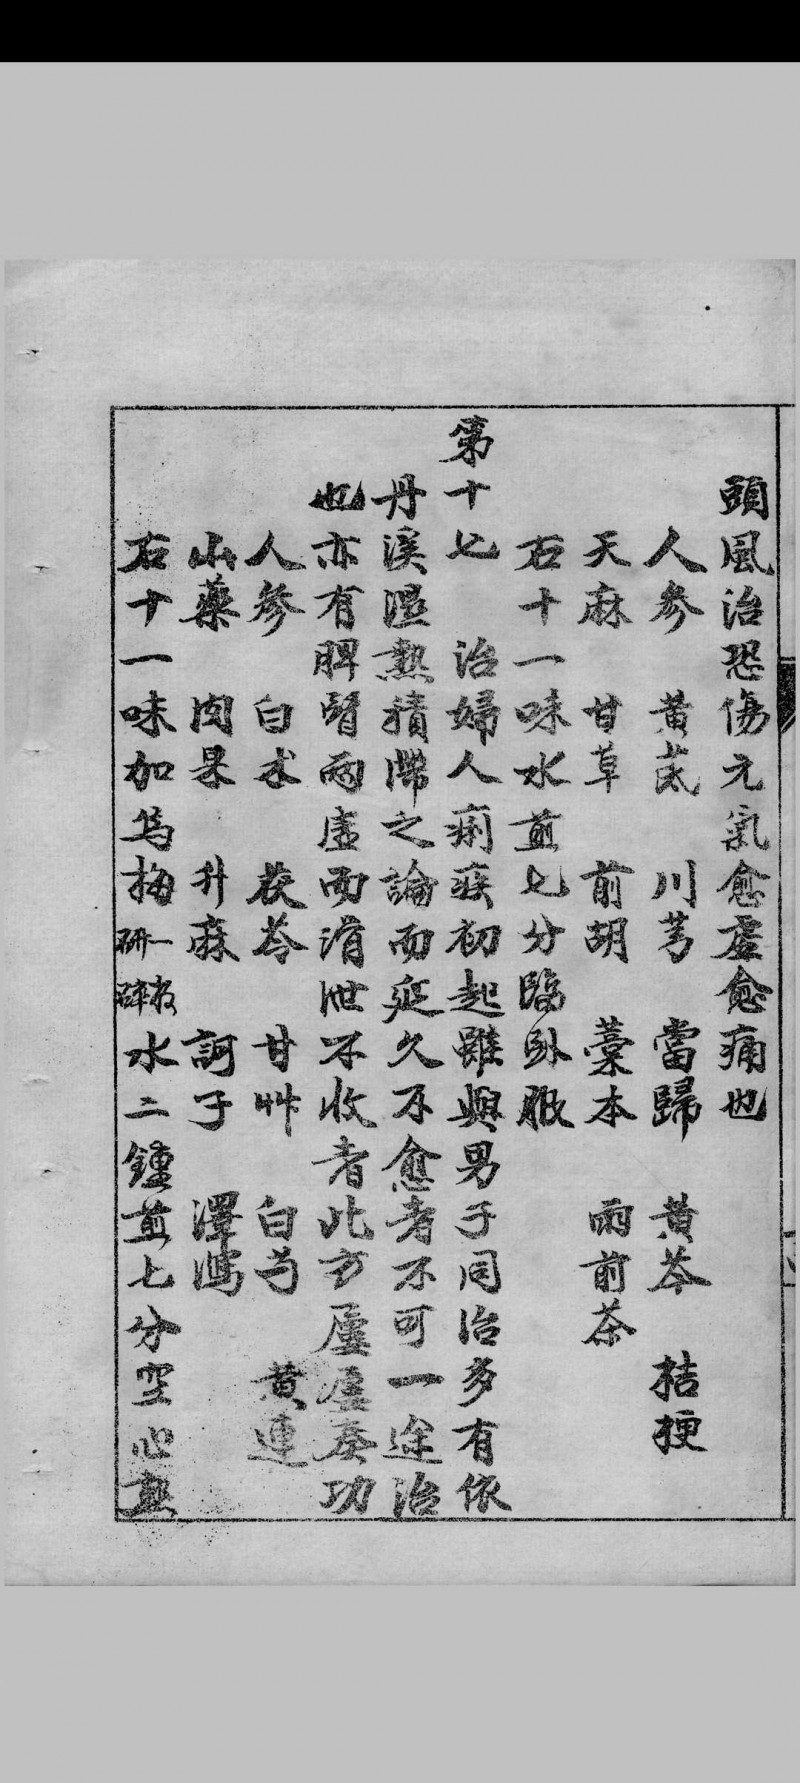 頭風治恐傷元氣愈虛愈痛也
人參　黃芪　川芎　當歸　黃芩　桔梗
天麻　甘草　前胡　藁本　雨前茶
右十一味水煎七分臨卧服
第十七　治婦人痢疾初起雖與男子同治多有依
丹溪濕熱積滯之論而延久不愈者不可一途治
也亦有脾腎兩虛而滑泄不收者此方屢屢奏功
人參　白朮　茯苓　甘艸　白芍　黃連
山藥　肉果　升麻　訶子　澤瀉
右十一味加烏梅一枚研碎水二鍾煎七分空心熱